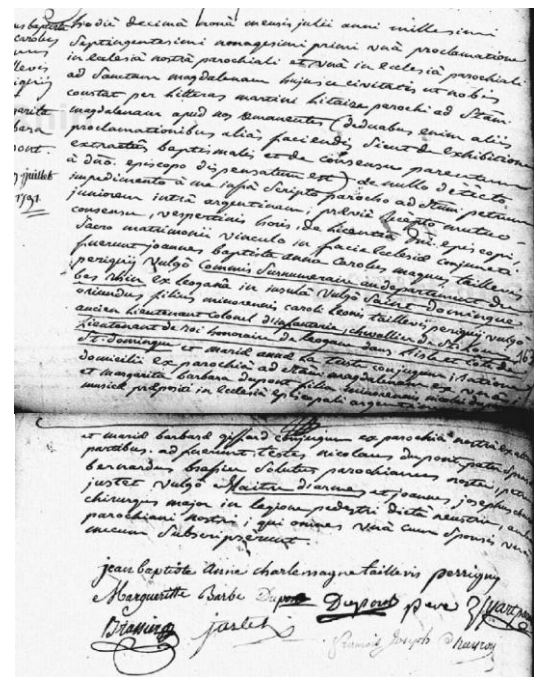 us baptista
carolus
llevis
garita
bara
pont.
9 juillet
1791.
hodiè decimâ nonâ mensis julii anni millesimi
septingentesimi nonagesimi primi unâ proclamatione
in ecclesiâ nostrâ parochiali et unâ in ecclesiâ parochiali
ad sanctam magdalenam hujus ce civitatis ut nobis
constat per litteras martini hilaire parochi ad stam
magdalenam apud nos remanentes (de duabus enim aliis
proclamationibus aliàs faciendis sicut de exhibitione
extractûs baptismalis et de consensu parentum
à dno. episcopo dispensatum est) de nullo detecto
impedimento à me infrà scripto parocho ad stum petrum
juniorem intrà argentinam, præviè accepto mutuo
consensu, vespertinis horis, de licentiâ dni. episcopi,
sacro matrimonii vinculo in facie ecclesiæ conjuncti
fuerunt joannes baptista anna carolus magnus taillevis
perigny vulgò commis surnumeraire au departement du
bas rhin ex leogana in insulâ vulgò saint domingue
oriundus filius minorennis caroli leonis taillevis perigny vulgò
ancien lieutenant colonel d'infanterie, chevalier de St. Louis
lieutenant de roi honoraire de leogane dans l'isle et cote de
St. domingue et mariæ annæ La tuste conjugum ratione
domicilii ex parochiâ ad stam magdalenam ex unâ
et margarita barbara dupont filia minorennis nicolai
musicæ præpositi in ecclesiâ episcopali argentin
et mariæ barbaræ giffard conjugum ex parochiâ nostrâ ex alterâ
partibus. adfuerunt testes nicolaus dupont pater sponsæ
bernardus solutus parochianus noster, petrus
justet vulgò Maître d'armes et joannes josephus
chirurgus major in legione pedestri dictâ neustrie, ambo
parochiani nostri; qui omnes unâ cum sponsis
mecum subscripserunt.
jean baptiste anne charlemagne taillevis perrigny
Margueritte Barbe Dupont Dupont pere
justet
françois joseph